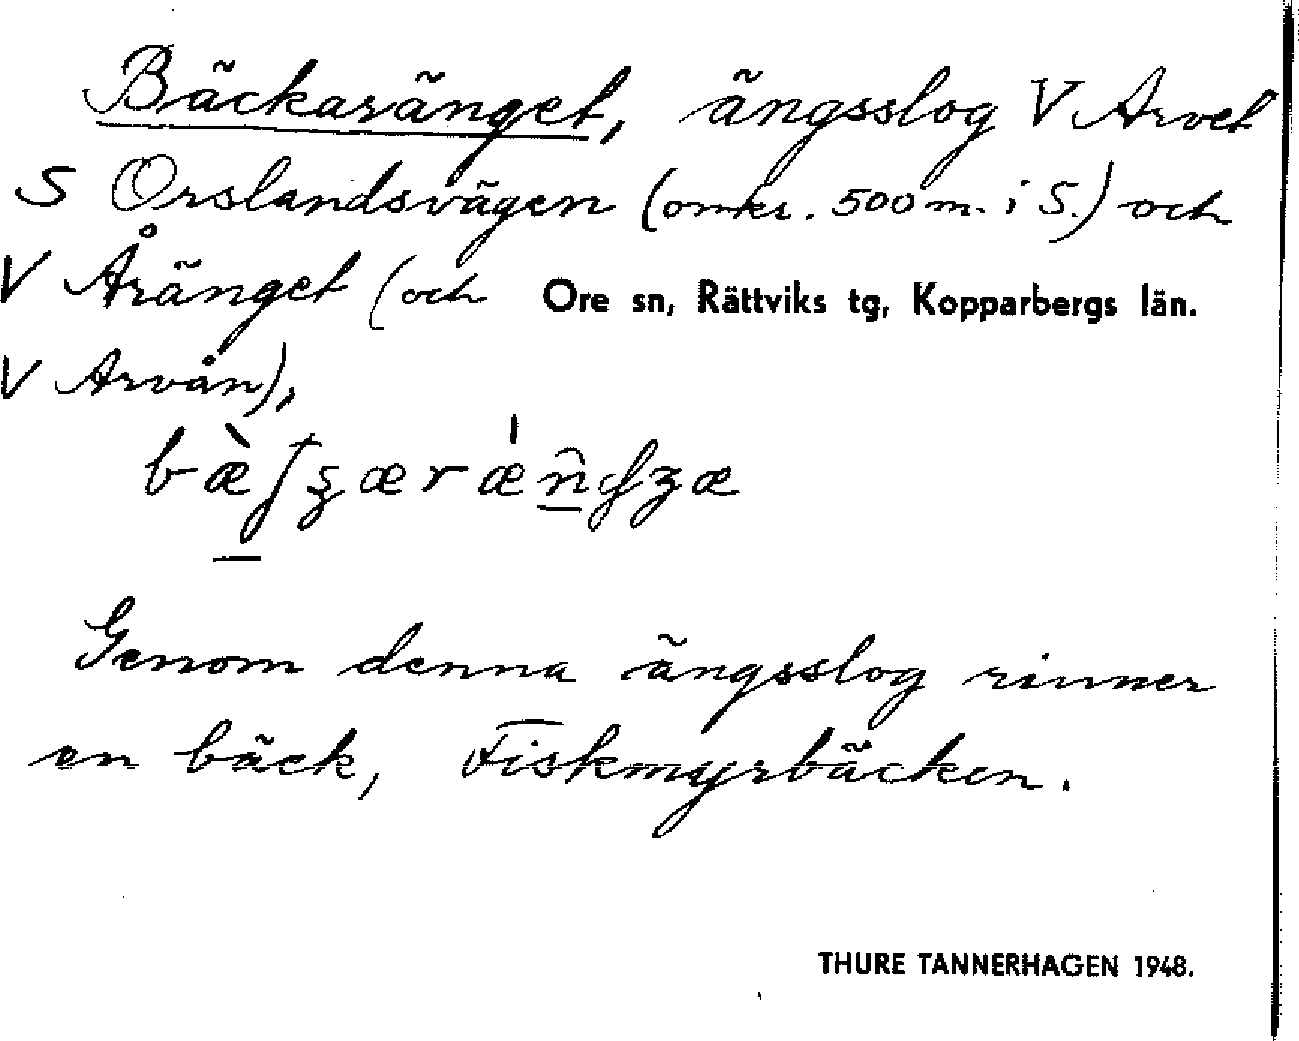 Bäckaränget, ängsslog V Arvet
S Orslandsvägen (omkr. 500 m. i S.) och
V Åränget (och Ore sn, Rättviks tg, Kopparbergs län.
V Arvån),
Genom denna ängsslog rinner
en bäck, Fiskmyrbäcken.
THURE TANNERHAGEN 1948.